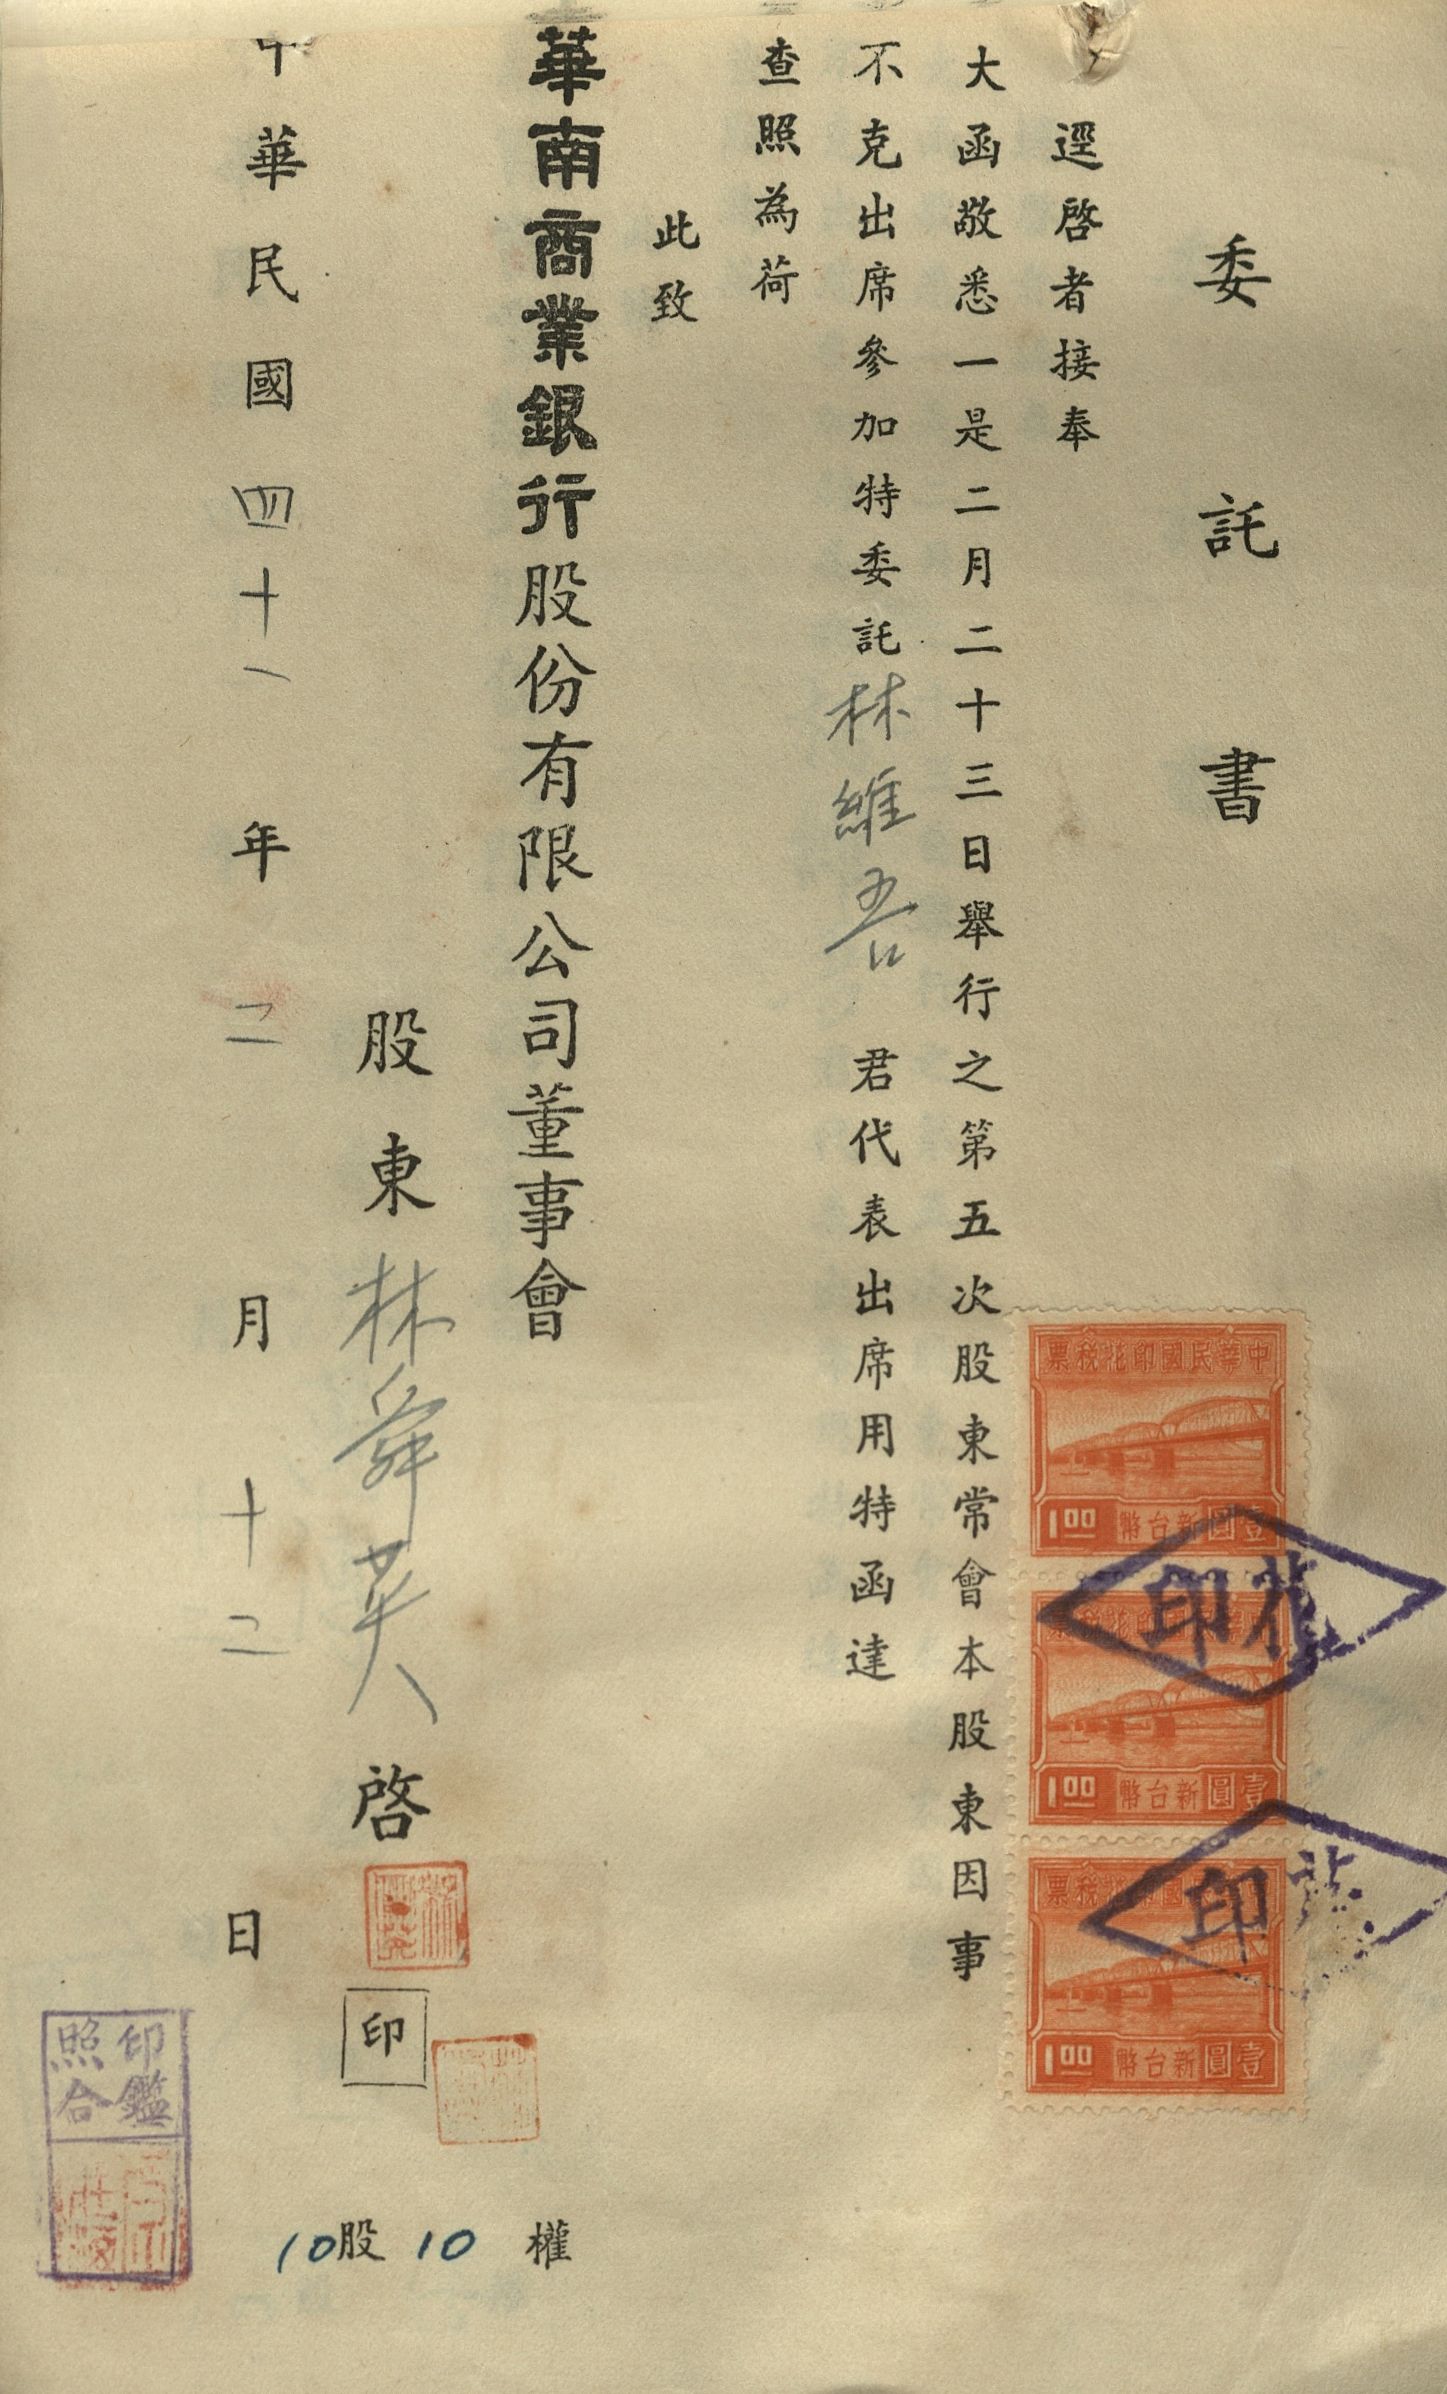 委託書
逕啓者接奉
大函敬悉一是二月二十三日舉行之第五次股東常會本股東因事
不克出席參加特委託林維吾君代表出席用特函達
查照為荷
此致
華南商業銀行股份有限公司董事會
股東林舜英啓
印
中華民國四十一年二月十二日
10股10權
印鑑
照合
中華民國印花稅票
壹圓新台幣
1.00
花印
中華民國印花稅票
壹圓新台幣
1.00
花印
中華民國印花稅票
壹圓新台幣
1.00